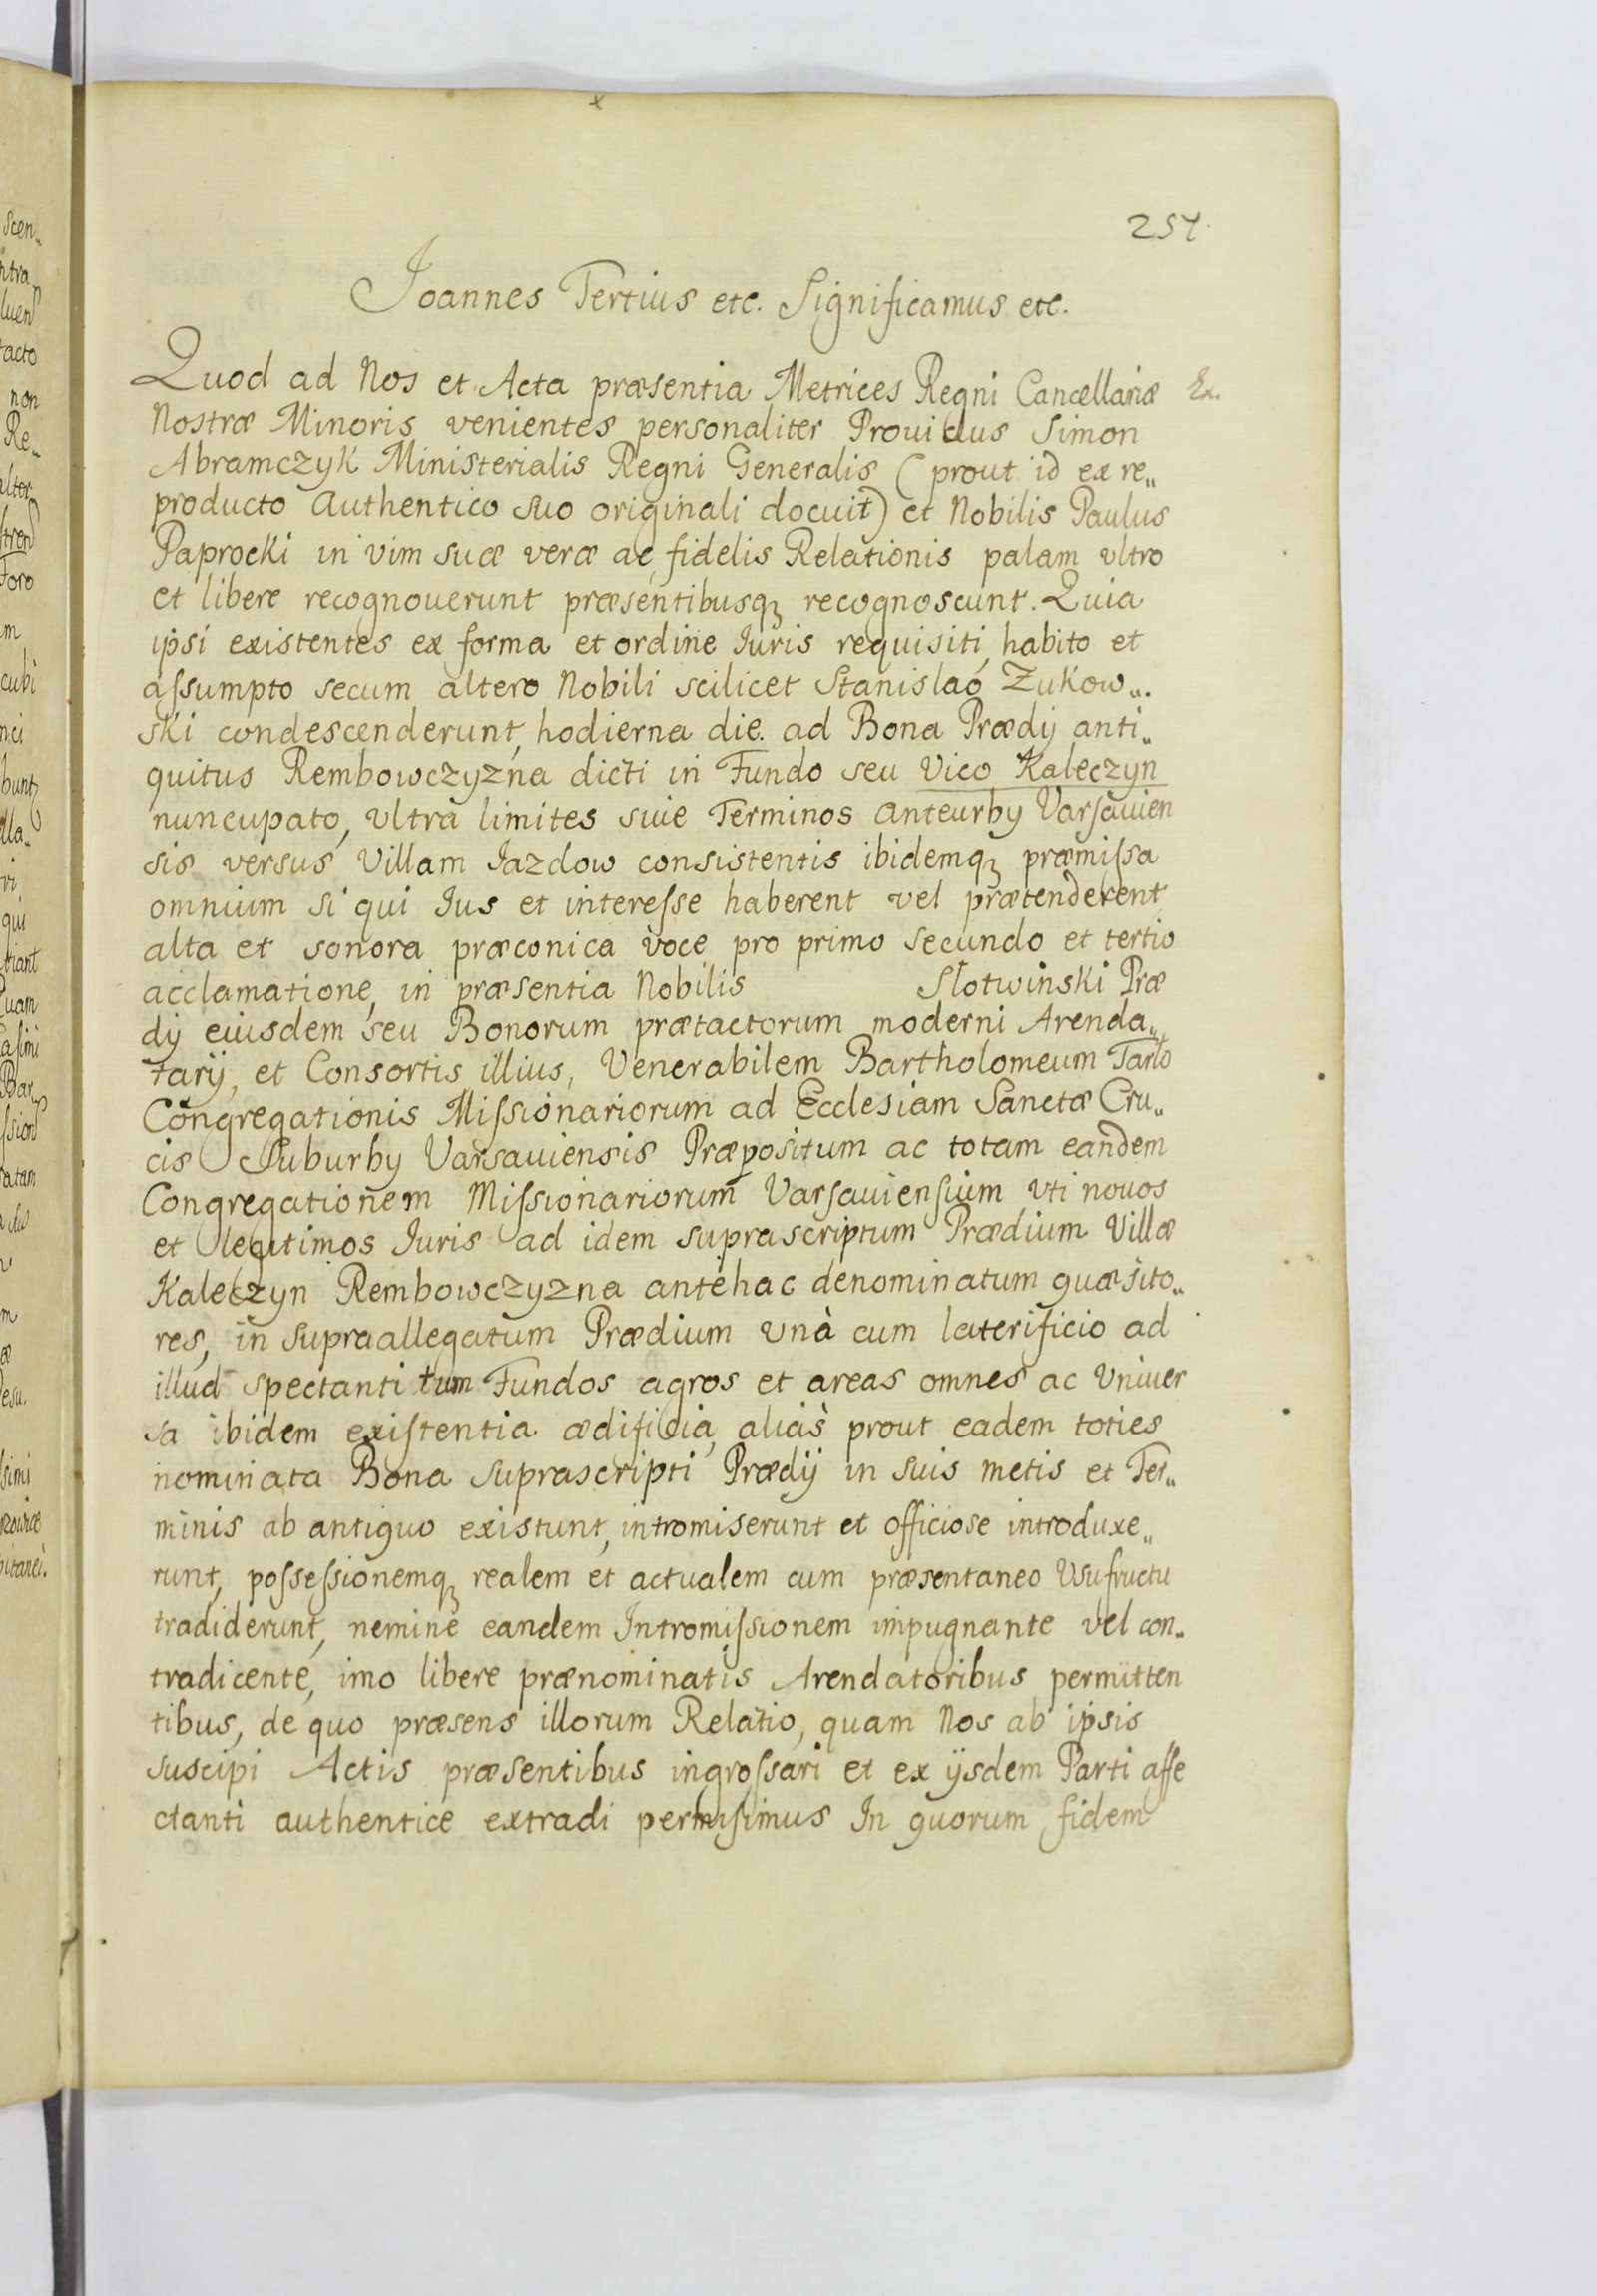 254.
Joannes Tertius etc. Significamus etc.
Quod ad Nos et Acta præsentia Metrices Regni Cancellariæ Ex.
Nostræ Minoris venientes personaliter Prouidus Simon
Abramczyk Ministerialis Regni Generalis (prout id ex re„
producto Authentico suo originali docuit) et Nobilis Paulus
Paprocki in vim suæ veræ ac fidelis Relationis palam vltro
et libere recognouerunt præsentibusq recognoscunt. Quia
ipsi existentes ex forma et ordine Iuris requisiti, habito et
assumpto secum altero Nobili scilicet Stanislao Zukow„
ski condescenderunt, hodierna die. ad Bona Prædij anti„
quitus Rembowczyzna dicti in Fundo seu Vico Kaleczyn
nuncupato, vltra limites siue Terminos anteurby Varsauien
sis versus Villam Jazdow consistentis ibidemq præmissa
omnium si qui Ius et interesse haberent vel prætenderent
alta et sonora præconica voce pro primo secundo et tertio
acclamatione, in præsentia Nobilis Słotwinski Præ
dij eiusdem seu Bonorum prætactorum moderni Arenda„
tarÿ, et Consortis illius, Venerabilem Bartholomeum Tarło
Congregationis Missionariorum ad Ecclesiam Sanctæ Cru„
cis Suburby Varsauiensis Præpositum ac totam eandem
Congregationem Missionariorum Varsauiensium vti nouos
et legitimos Iuris ad idem suprascriptum Prædium Villæ
Kaleczyn Rembowczyzna antehac denominatum quæsito„
res, in supraallegatum Prædium vnà cum laterificio ad
illud spectanti tum Fundos agros et areas omnes ac Vniuer
sa ibidem existentia ædificia, aliàs prout eadem toties
nominata Bona suprascripti Prædÿ in suis metis et Ter„
minis ab antiquo existunt, intromiserunt et officiose introduxe„
runt, possessionemq realem et actualem cum præsentaneo Vsufructu
tradiderunt, nemine eandem Intromissionem impugnante vel con„
tradicente, imo libere prænominatis Arendatoribus permitten
tibus, de quo præsens illorum Relatio, quam Nos ab ipsis
suscipi Actis præsentibus ingrossari et ex ÿsdem Parti affe
ctanti authentice extradi permisimus In quorum fidem